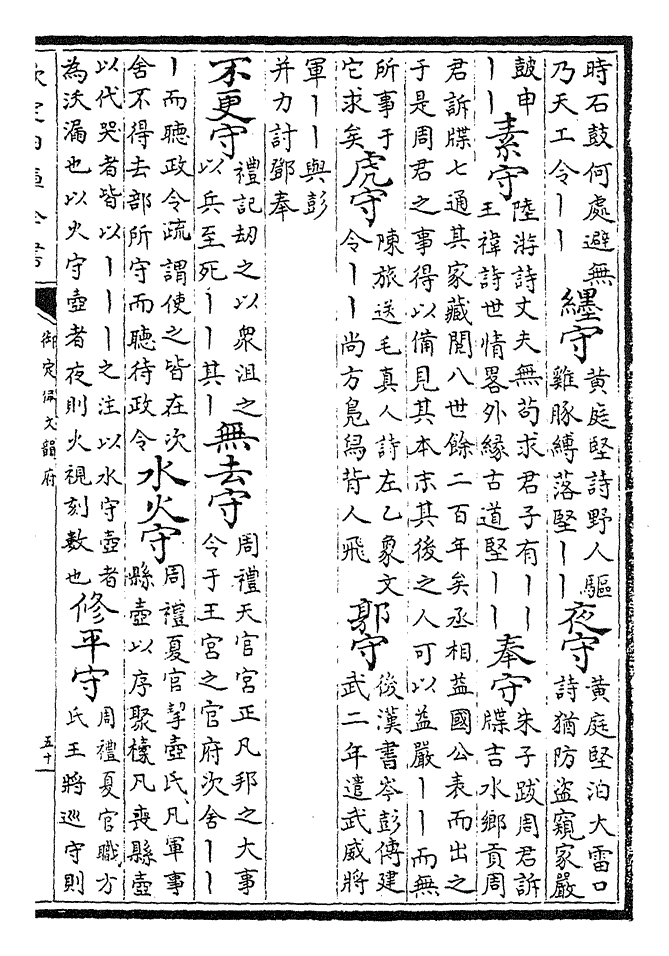 時石鼓何處避無
乃天工令丨丨
纆守
黃庭堅詩野人驅
雞豚縛落堅丨丨
夜守
黃庭堅泊大雷口
詩猶防盜窺家嚴
鼓申
丨丨
素守
陸游詩丈夫無苟求君子有丨丨
王褘詩世情畧外緣古道堅丨丨
奉守
朱子跋周君訴
牒吉水鄉貢周
君訴牒七通其家藏閱八世餘二百年矣丞相益國公表而出之
于是周君之事得以備見其本末其後之人可以益嚴丨丨而無
所事于
它求矣
虎守
陳旅送毛真人詩左乙象文
令丨丨尚方鳧舄背人飛
郭守
後漢書岑彭傳建
武二年遣武威將
軍丨丨與彭
并力討鄧奉
不更守
禮記劫之以衆沮之
以兵至死丨丨其丨
無去守
周禮天官宮正凡邦之大事
令于王宮之官府次舍丨丨
丨而聽政令疏謂使之皆在次
舍不得去部所守而聽待政令
水火守
周禮夏官挈壺氏凡軍事
縣壺以序聚㯿凡喪縣壺
以代哭者皆以丨丨丨之注以水守壺者
為沃漏也以火守壺者夜則火視刻數也
修平守
周禮夏官職方
氏王將巡守則
欽定四庫全書
御定佩文韻府
五十